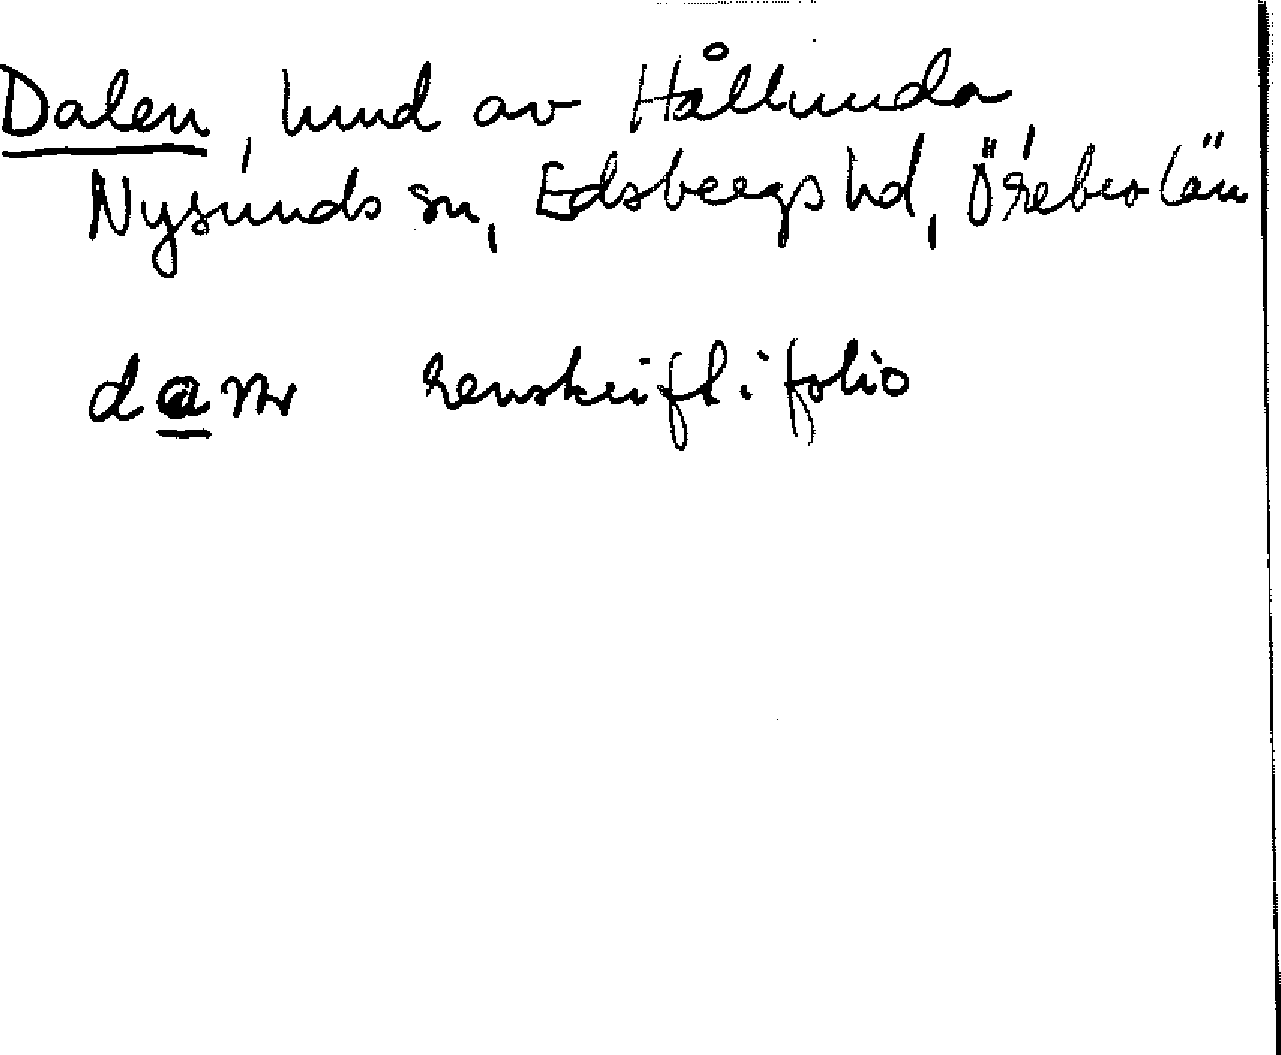 Dalen, hmd av Hållunda,
Nysunds sn, Edsbergs hd, Örebro län
renskrift i folio